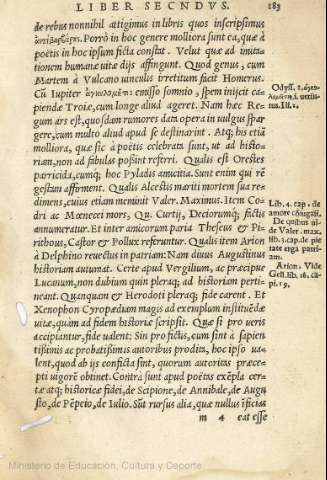 LIBER SECNDVS. 183
de rebus nonnihil attigimus in libris quos inscripsimus
Porrò in hoc genere molliora sunt ea, quæ à
poëtis in hoc ipsum ficta constat. Velut quæ ad imita
tionem humanæ uitæ dijs affingunt. Quod genus, cum
Martem à Vulcano uinculis irretitum facit Homerus.
Cū Iupiter emisso somnio, spem inijcit ca-
piendæ Troiæ, cum longe aliud ageret. Nam hæc Re-
gum ars est, quosdam rumores data opera in uulgus spar
gere, cum multo aliud apud se destinarint. Atq; his etiā
molliora, quæ sic à poëtis celebrata sunt, ut ad histo-
riam, non ad fabulas possint referri. Qualis est Orestes
parricida, cumq; hoc Pyladis amicitia. Sunt enim qui rē
gestam affirment. Qualis Alcestis mariti mortem sua re-
dimens, cuius etiam meminit Valer. Maximus. Item Co
dri ac Mœneci mors, Qu. Curtij, Deciorumq; fictis
annumeratur. Et inter amicorum paria Theseus & Pi-
rithous, Castor & Pollux referuntur. Qualis item Arion
à Delphino reuectus in patriam: Nam diuus Augustinus
historiam autumat. Certe apud Vergilium, ac præcipue
Lucanum, non dubium quin pleraq; ad historiam perti-
neant. Quanquam & Herodoti pleraq; fide carent. Et
Xenophon Cyropædiam magis ad exemplum instituēdæ
uitæ, quàm ad fidem historiæ scripsit. Quæ si pro ueris
accipiantur, fide ualent: Sin pro fictis, cum sint à sapien
tissimis ac probatissimis autoribus prodita, hoc ipso ua-
lent, quod ab ijs conficta sint, quorum autoritas præce-
pti uigorē obtinet. Contrà sunt apud poëtas exēpla cer-
tæ atq; historicæ fidei, de Scipione, de Annibale, de Augu
sto, de Pōpeio, de Iulio. Sūt rursus alia, quæ nullus īficias
m 4 eat esse
Odyss.
Ili. 2.
Lib. 4. cap. de
amore cōiugali.
De quibus ui-
de Valer. max.
lib. 5. cap. de pie
tate erga patri-
am.
Arion. Vide
Gell. lib. 16. ca-
pi. 19.
Ministerio de Educación, Cultura y Deporte